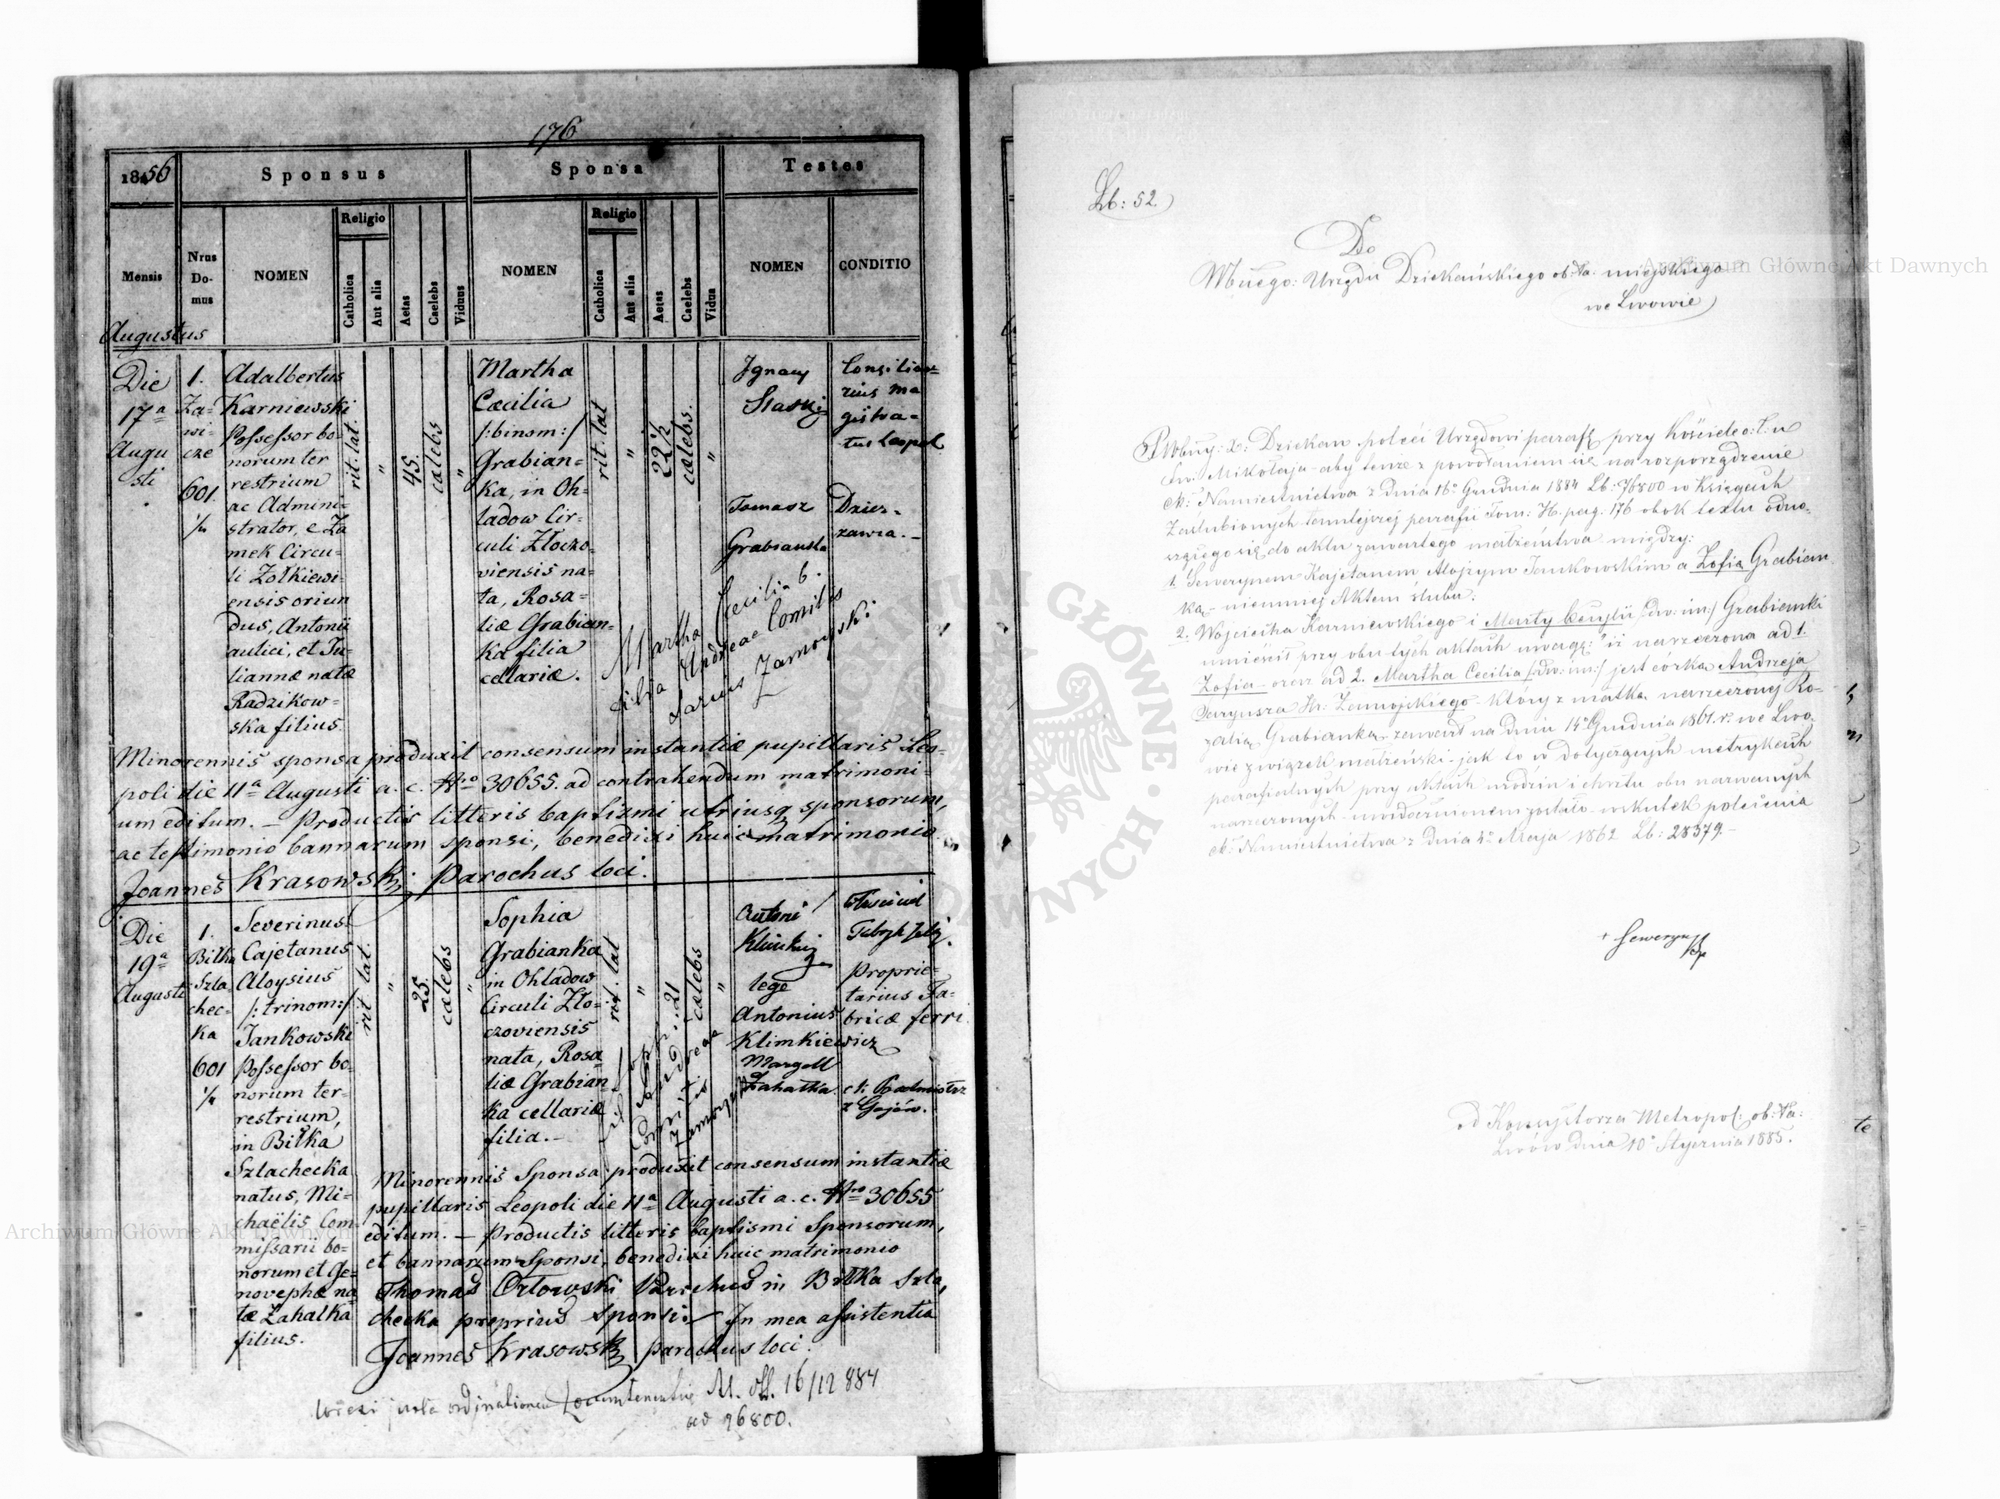 176
1856
Sponsus
Sponsa
Testes
Mensis
Nrus Domus
NOMEN
Religio
Catholica
Aut alia
Aetas
Caelebs
Viduus
NOMEN
Religio
Catholica
Aut alia
Aetas
Caelebs
Vidua
NOMEN
CONDITIO
Augustus
Die
17ª
Augu
sti
1.
Za-
wi-
cze
601
¼
Adalbertus
Karniewski
Possessor bo-
norum ter
restrium
ac Admini-
strator, e Za
mek Circu-
li Zołkiewi-
ensis oriun
dus, Antonii
aulici, et Ju-
liannæ natæ
Radzikow-
ska filius.
rit. lat.
"
45.
cælebs
"
Martha
Cæcilia
/:binom:/
Grabian-
ka, in Oh-
ladow Cir-
culi Złoczo-
viensis na-
ta, Rosa-
liæ Grabian-
ka filia
cellariæ.
rit. lat
"
22½
cælebs.
"
Martha Cecilia b.
filia Andreae Comitis
Zamoyski
Ignacy
Slaski
Consilia-
rius ma
gistra-
tus Leopol
Tomasz
Grabianka
Dzier-
zawca.-
Minorennis sponsa produxit consensum instantiæ pupillaris Leo-
poli die 11ª Augusti a. c. Nro 30655. ad contrahendum matrimoni-
um editum. – Productis litteris baptismi utriusq sponsorum,
ac testimonio bannarum sponsi, benedixi huic matrimonio
Joannes Krasowski Parochus loci.
Die
19ª
Augusti
1.
Biłka
Szla
chec-
ka
601
¼
Severinus
Cajetanus
Aloysius
/:trinom:/
Jankowski
Possessor bo-
norum ter-
restrium,
in Biłka
Szlachecka
natus, Mi-
chaëlis Com-
missarii bo-
norum et Ge-
novephæ na
tæ Zahałka
filius.
rit lat.
"
25.
cælebs
"
Sophia
Grabianka
in Ohladow
Circuli Zło-
czoviensis
nata, Rosa
liæ Grabian-
ka cellariæ
filia.-
rit. lat
"
21
cælebs
"
Antoni
lege
Antonius
Klimkiewicz
Proprie-
tarius Fa-
bricæ ferri.
Zahałka
Minorennis Sponsa produxit consensum instantiæ
pupillaris Leopoli die 11ª Augusti a. c. Nro 30655
editum. – Productis litteris baptismi Sponsorum,
et bannarum Sponsi, benedixi huic matrimonio
Thomas Orłowski Parochus in Biłka Szla,
checka proprius Sponsi – In mea assistentia
Joannes Krasowski parochus loci.
juxta ordinationem Locumtenentiæ 16/12 884
ad 76800.
Lb: 52.
Do
Urzędu Dziekańskiego ob: ła: miejskiego
we Lwowie
Dziekan poleci Urzędowi paraf: przy Kościele o: ł: u
św. Mikołaja aby tenże z powołaniem się na rozporządzenie
ck: Namiestnictwa z dnia 16º Grudnia 1884 Lb: 76800 w Księgach
Zaślubionych tamtejszej parafii Tom: H. pag: 176 obok textu odno-
szącego się do aktu zawartego małżeństwa między:
1. Sewerynem Kajetanem Alojzym Jankowskim a Zofią Grabian
ką – niemniej Aktem ślubu:
2. Wojciecha Karniewskiego i Marty Cecylii /:dw: im:/ Grabianki
umieścił przy obu tych aktach uwagę: "iż narzeczona ad 1.
Zofia – oraz ad 2. Martha Cecilia /:dw: im:/ jest córką Andrzeja
Hr: Zamojskiego – który z matką narzeczonej Ro-
zalią Grabianką zawarł na dniu 14º Grudnia 1861. r. we Lwo-
wie związek małżeński – jak to w dotyczących metrykach
parafialnych przy aktach urodzin i chrztu obu nazwanych
narzeczonych uwidocznionem zostało wskutek polecenia
ck: Namiestnictwa z dnia 4º Maja 1862 Lb: 28379.–
+ Seweryn
od Konsystorza Metropol: ob: ła:
Lwów dnia 10º Stycznia 1885.
te
Archiwum Główne Akt Dawnych
Archiwum Główne Akt Dawnych
ARCHIWUM GŁÓWNE AKT DAWNYCH